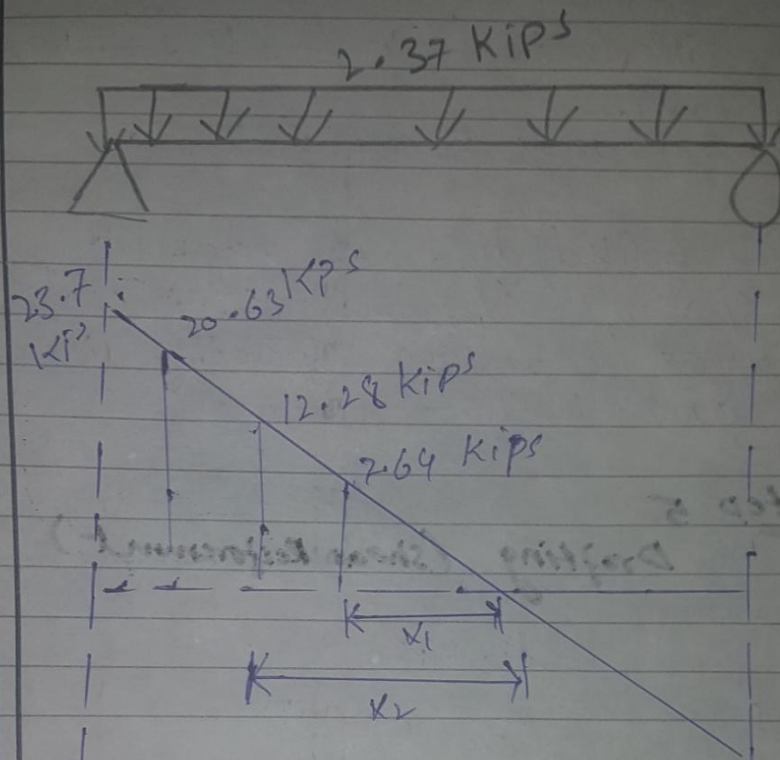 2.37 Kips
23.7
Kips
20.63 Kps
12.28 Kips
7.64 Kips
x1
x2